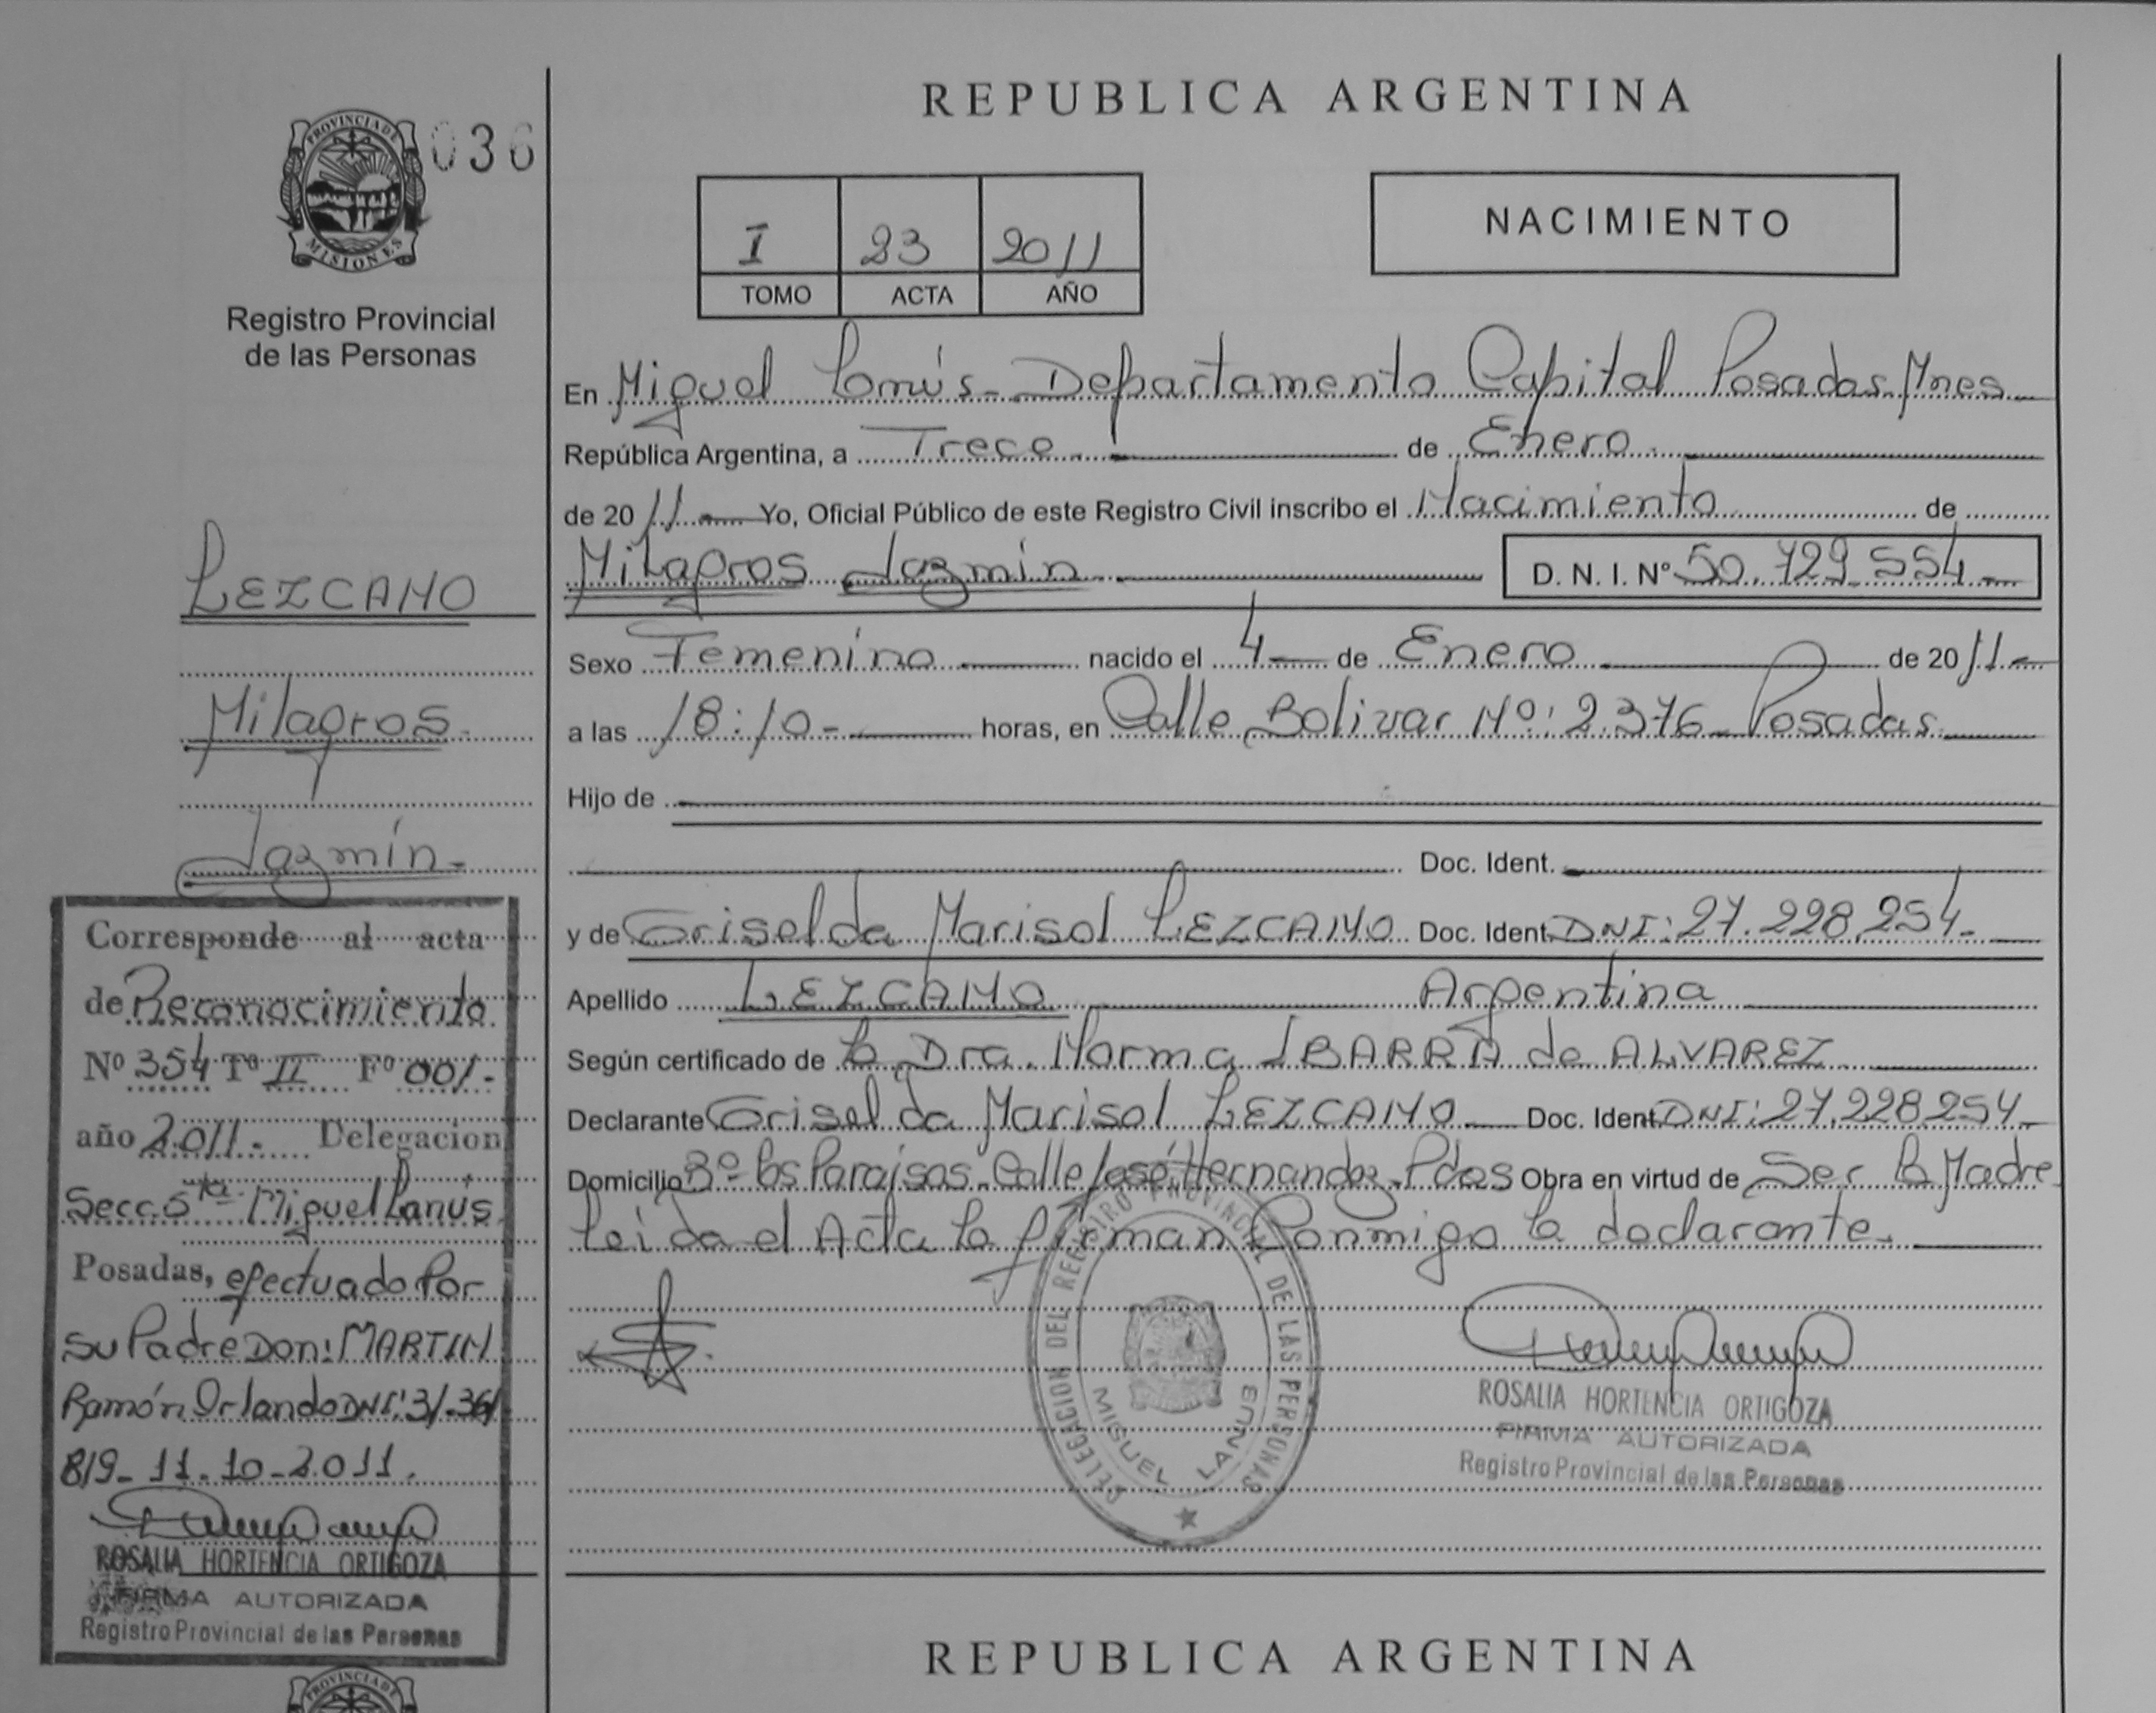 PROVINCIA DE
MISIONES
036
Registro Provincial
de las Personas
LEZCANO
Milagros
Jazmín-
Corresponde al acta
de Reconocimiento
Nº 354 Tº II Fº 001-
año 2011. Delegacion
Secc. 5ta Miguel Lanús
Posadas, efectuado Por
su Padre Don: MARTIN
Ramón Orlando DNI: 31.361
819- 11-10-2011.
ROSALIA HORTENCIA ORTIGOZA
FIRMA AUTORIZADA
Registro Provincial de las Personas
PROVINCIA DE
REPUBLICA ARGENTINA
I 23 2011
TOMO ACTA AÑO
NACIMIENTO
En Miguel Lanús- Departamento Capital Posadas. Mnes
República Argentina, a Trece de Enero
de 2011 Yo, Oficial Público de este Registro Civil inscribo el Nacimiento de
Milagros Jazmín D. N. I. Nº 50.729.554-
Sexo Femenino nacido el 4 de Enero de 2011-
a las 18:10- horas, en Calle Bolivar Nº: 2.376- Posadas
Hijo de
Doc. Ident.
y de Griselda Marisol LEZCANO Doc. Ident. DNI: 27.228.254-
Apellido LEZCANO Argentina
Según certificado de la Dra. Norma IBARRA de ALVAREZ
Declarante Griselda Marisol LEZCANO Doc. Ident. DNI: 27.228.254-
Domicilio Bº Los Paraisos- Calle José Hernandez- Pdas Obra en virtud de Ser la Madre
Leida el Acta la firman Conmigo la declarante.
DELEGACION DEL REGISTRO PROVINCIAL DE LAS PERSONAS
MIGUEL LANUS
ROSALIA HORTENCIA ORTIGOZA
FIRMA AUTORIZADA
Registro Provincial de las Personas
REPUBLICA ARGENTINA